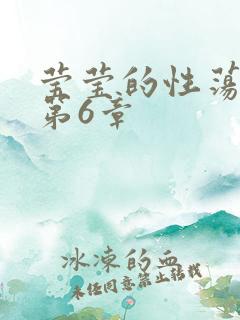 莹莹的性荡
第6章
冰凍的血
未经同意禁止转载